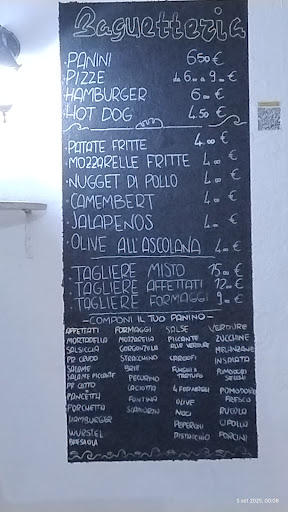 Baguetteria
·PANINI 6.50€
·PIZZE da 6.00 a 9.00€
·HAMBURGER 6.00€
·HOT DOG 4.50€
·PATATE FRITTE 4.00€
·MOZZARELLE FRITTE 4.00€
·NUGGET DI POLLO 4.00€
·CAMEMBERT 4.00€
·JALAPENOS 4.00€
·OLIVE ALL'ASCOLANA 4.00€
·TAGLIERE MISTO 15.00€
·TAGLIERE AFFETTATI 12.00€
·TAGLIERE FORMAGGI 9.00€
-COMPONI IL TUO PANINO-
AFFETTATI
MORTADELLA
SALSICCIA
PR CRUDO
SALAME
SALAME PICCANTE
PR COTTO
PANCETTA
PORCHETTA
HAMBURGER
WURSTEL
BRESAOLA
FORMAGGI
MOZZARELLA
GORGONZOLA
STRACCHINO
BRIE
PECORINO
CACIOTTA
FONTINA
SCAMORZA
SALSE
PICCANTE
ALLE VERDURE
CARCIOFI
FUNGHI E
TARTUFO
4 FORMAGGI
OLIVE
NOCI
PEPERONI
PISTACCHIO
VERDURE
ZUCCHINE
MELANZANE
INSALATA
POMODORI
SECCHI
POMODORO
FRESCO
RUCOLA
CIPOLLA
PORCINI
5 set 2025, 00:08